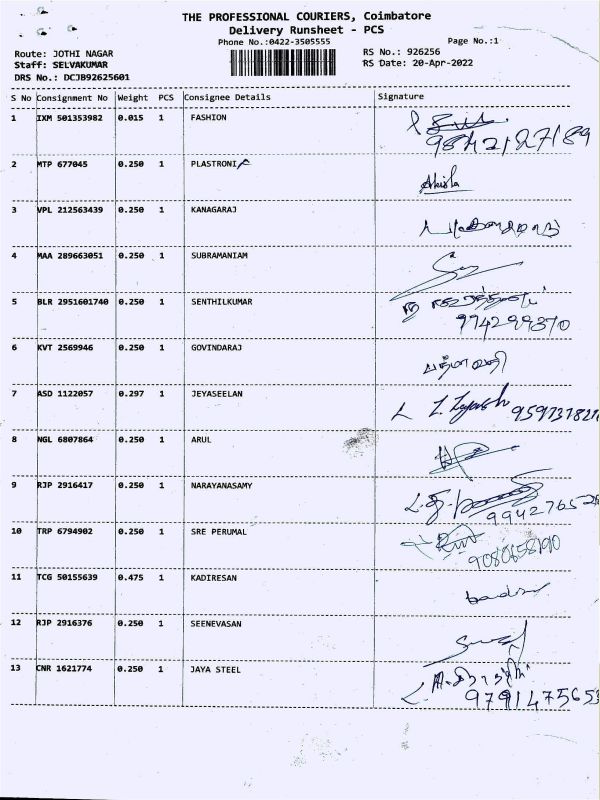 THE PROFESSIONAL COURIERS, Coimbatore
Delivery Runsheet - PCS
Phone No.:0422-3505555 Page No.:1
Route: JOTHI NAGAR RS No.: 926256
Staff: SELVAKUMAR RS Date: 20-Apr-2022
DRS No.: DCJB92625601
S No Consignment No Weight PCS Consignee Details Signature
1 IXM 501353982 0.015 1 FASHION
9842127189
2 MTP 677045 0.250 1 PLASTRONI
3 VPL 212563439 0.250 1 KANAGARAJ
4 MAA 289663051 0.250 1 SUBRAMANIAM
5 BLR 2951601740 0.250 1 SENTHILKUMAR
994299370
6 KVT 2569946 0.250 1 GOVINDARAJ பத்மாவதி
7 ASD 1122057 0.297 1 JEYASEELAN
8 NGL 6807864 0.250 1 ARUL
9 RJP 2916417 0.250 1 NARAYANASAMY
10 TRP 6794902 0.250 1 SRE PERUMAL
9080658190
11 TCG 50155639 0.475 1 KADIRESAN
12 RJP 2916376 0.250 1 SEENEVASAN
13 CNR 1621774 0.250 1 JAYA STEEL
979147565